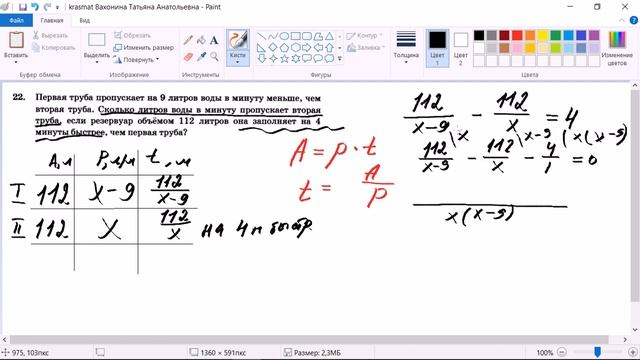 krasmat Вахонина Татьяна Анатольевна - Paint
Файл Главная Вид
Вставить
Вырезать
Копировать
Буфер обмена
Выделить
Обрезать
Изменить размер
Повернуть
Изображение
Инструменты
Кисти
Контур
Заливка
Фигуры
Толщина
Цвет 1
Цвет 2
Цвета
Изменение цветов
22. Первая труба пропускает на 9 литров воды в минуту меньше, чем
вторая труба. Сколько литров воды в минуту пропускает вторая
труба, если резервуар объёмом 112 литров она заполняет на 4
минуты быстрее, чем первая труба?
A, л P, л/м t, м
I 112 x-9 112/x-9
II 112 x 112/x на 4 м быстр
A = p · t
t = A/p
112/x-9 - 112/x = 4
112/x-9 \x - 112/x \x-9 - 4/1 \x(x-9) = 0
x(x-9)
975, 103пкс
1360 × 591пкс
Размер: 2,3МБ
100%